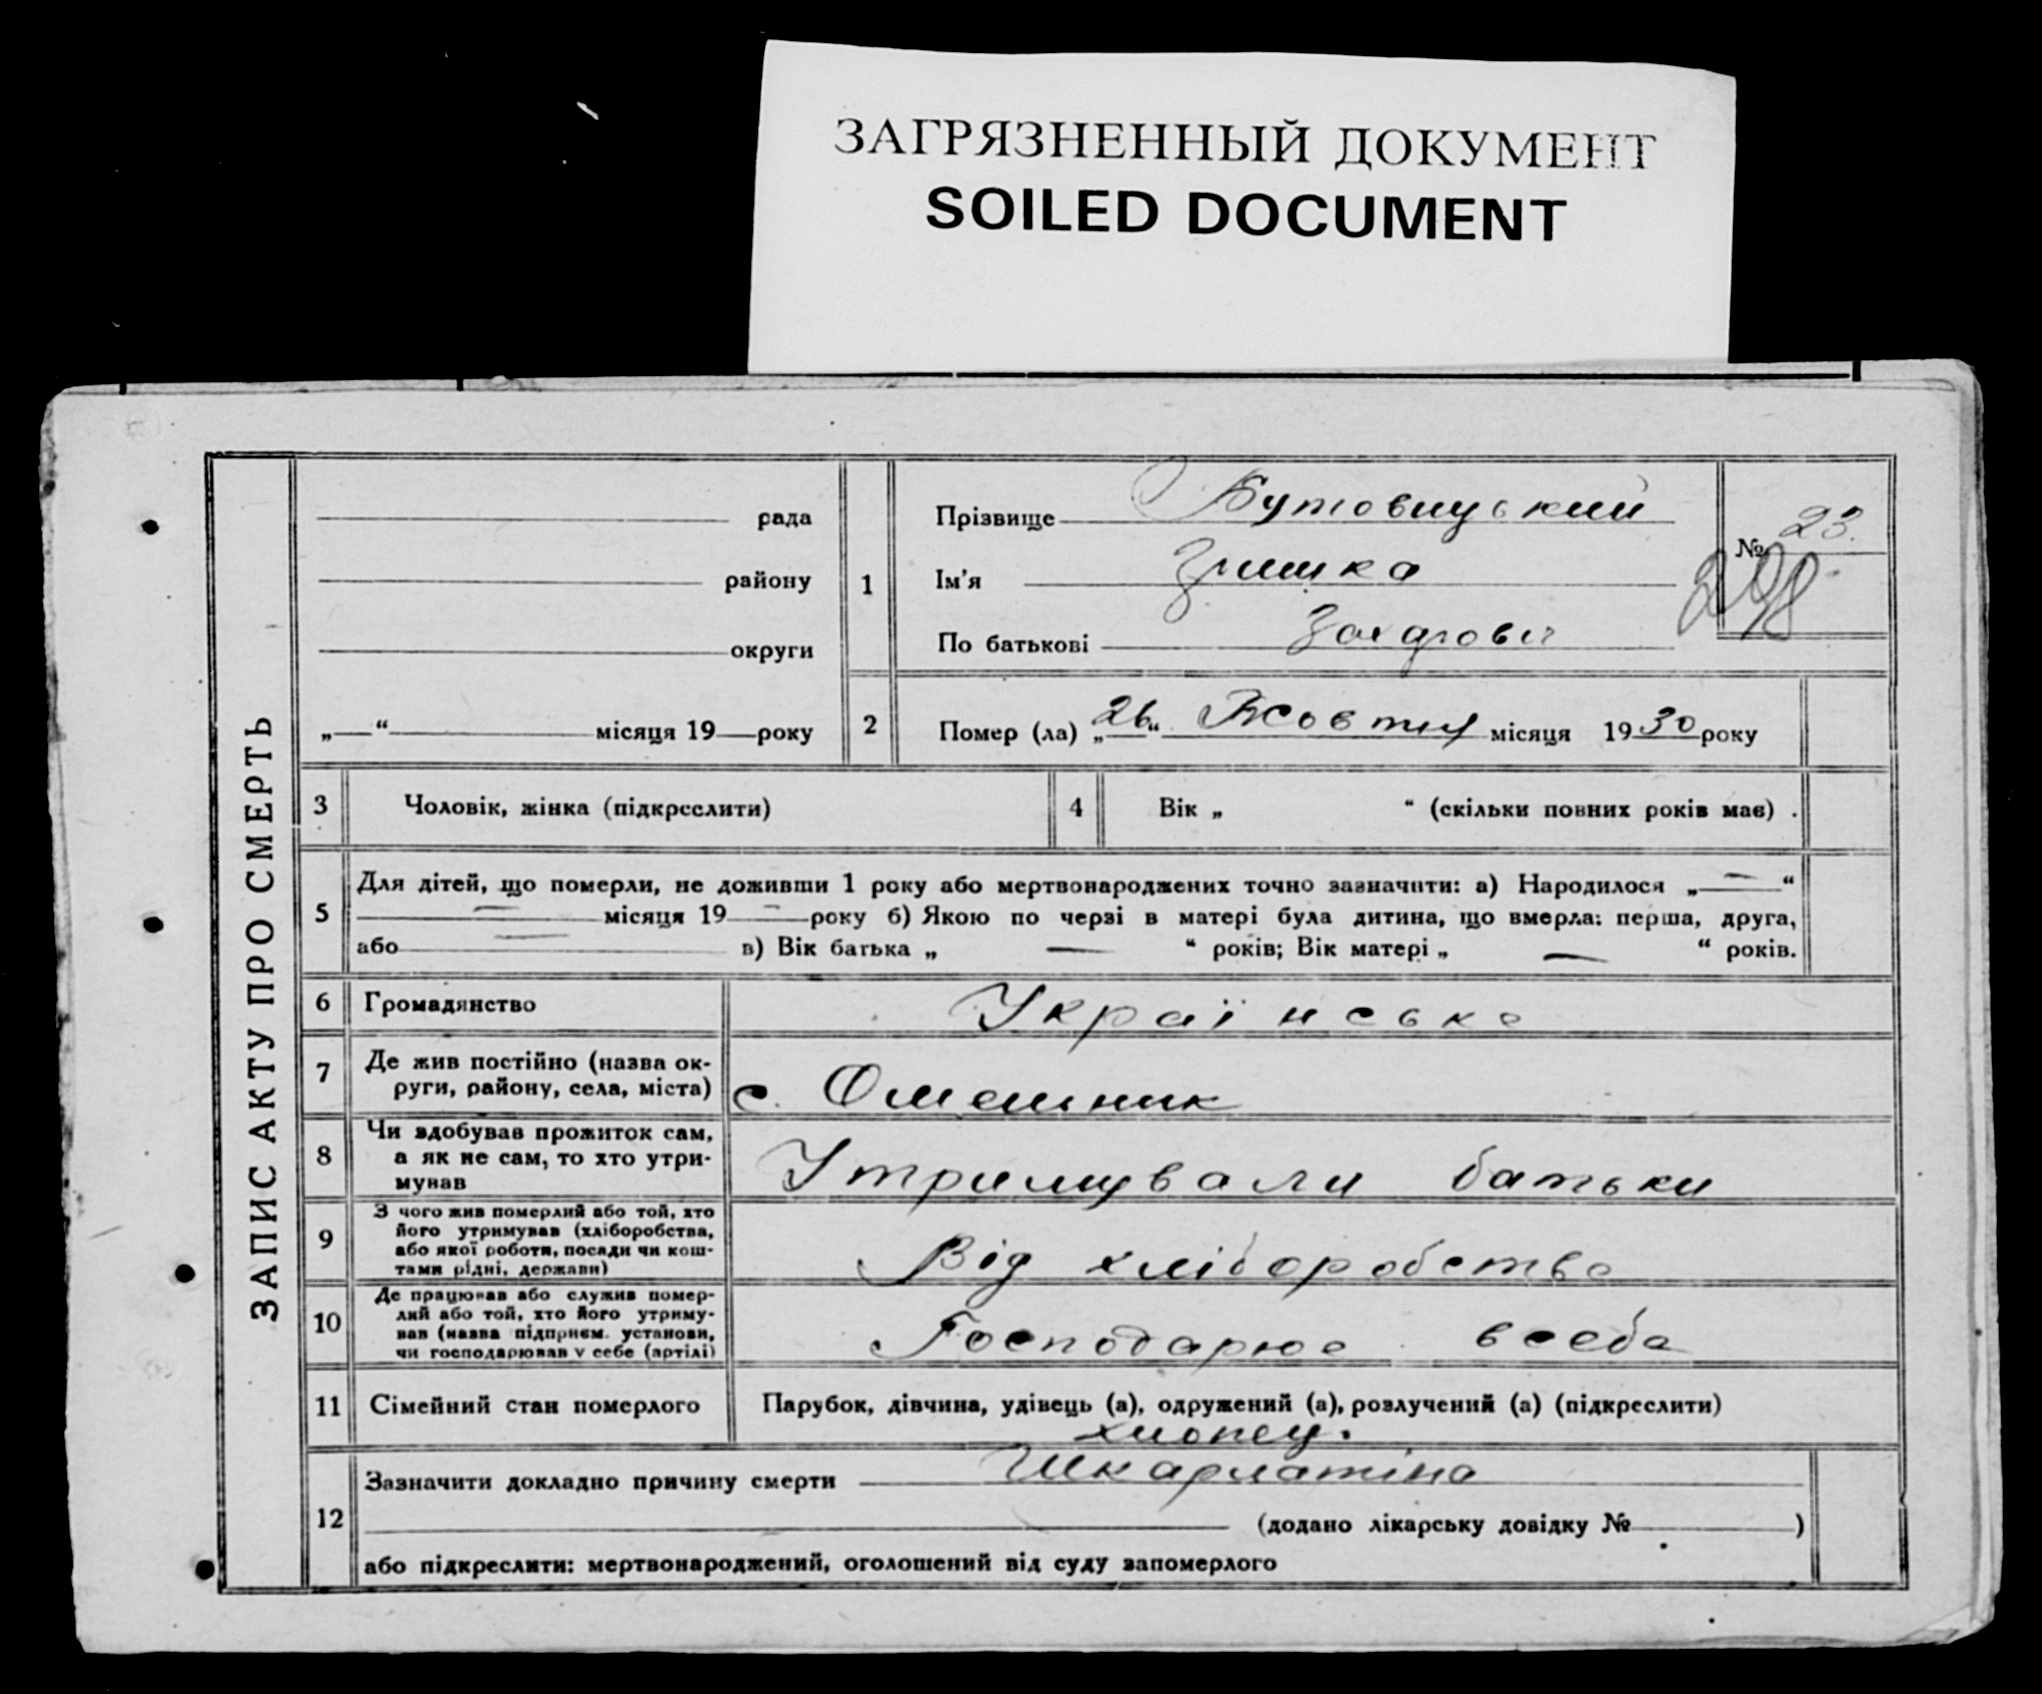 ЗАГРЯЗНЕННЫЙ ДОКУМЕНТ
SOILED DOCUMENT
ЗАПИС АКТУ ПРО СМЕРТЬ
рада
району
округи
„ “ місяця 19 року
1
Прізвище Бутовицький
Ім’я Гришка
По батькові Захарович
№ 23.
2
Помер (ла) „26“ Жовтня місяця 1930 року
3 Чоловік, жінка (підкреслити)
4 Вік „ “ (скільки повних років має) .
5 Для дітей, що померли, не доживши 1 року або мертвонароджених точно зазначити: а) Народилося „ — “
— місяця 19 — року б) Якою по черзі в матері була дитина, що вмерла: перша, друга,
або — в) Вік батька „ — “ років; Вік матері „ — “ років.
6 Громадянство Українське
7 Де жив постійно (назва ок-
руги, району, села, міста) с. Омельник
8 Чи здобував прожиток сам,
а як не сам, то хто утри-
мував Утримували батьки
9 З чого жив померлий або той, хто
його утримував (хліборобства,
або якої роботи, посади чи кош-
тами рідні, держави) Від хліборобства
10 Де працював або служив помер-
лий або той, хто його утриму-
вав (назва підприєм. установи,
чи господарював у себе (артілі) Господарює всеба
11 Сімейний стан померлого Парубок, дівчина, удівець (а), одружений (а), розлучений (а) (підкреслити)
хлопец.
12 Зазначити докладно причину смерти Шкарлатіна
(додано лікарську довідку № )
або підкреслити: мертвонароджений, оголошений від суду запомерлого